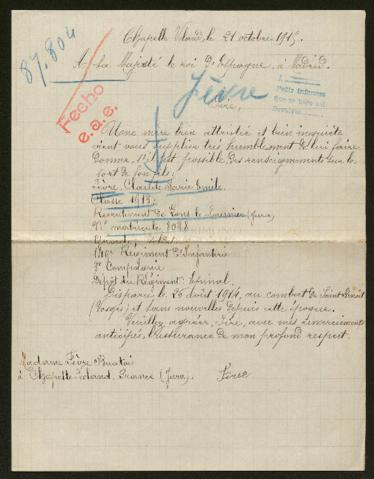 87.804
Chapelle Voland, le 21 octobre 1915
A Sa Majesté le roi d'Espagne, à Madrid.
Fèvre
Sire,
Fecho
e.a.e.
Une mère bien attristée et bien inquiète
vient vous supplier très humblement de lui faire
donner s'il est possible, des renseignements sur le
sort de son fils:
Fèvre, Charles Marie Emile
Classe 1913
Recrutement de Lons le Saunier (Jura)
N° matricule
Régiment d'Infanterie
Compagnie
Dépôt du Régiment: Epinal
Disparu le 26 août 1914, au combat de Saint Benoît
(Vosges) et sans nouvelles depuis cette époque.
Veuillez agréer, Sire, avec mes remerciements
anticipés, l'assurance de mon profond respect.
Madame Fèvre
à Chapelle-Voland, France (Jura).
Fèvre